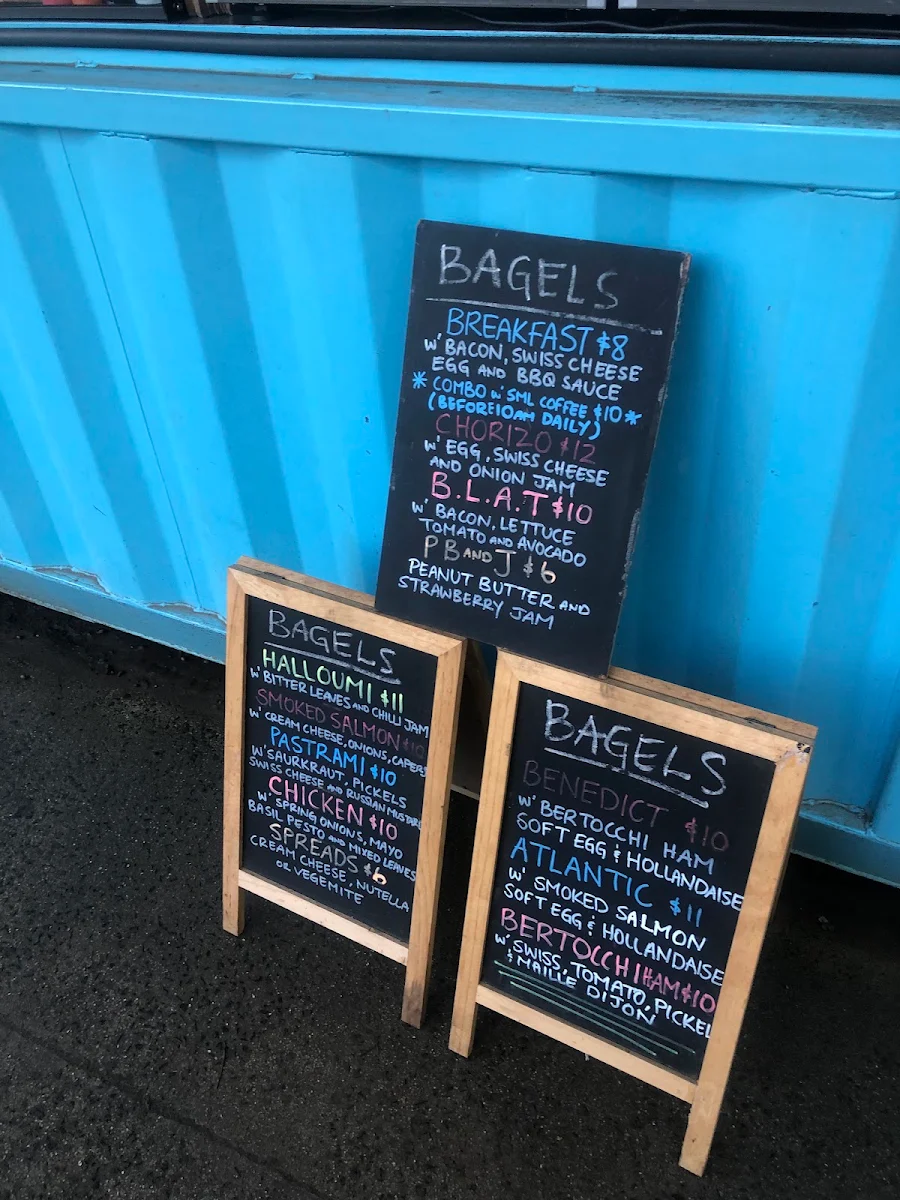 BAGELS
BREAKFAST $8
W' BACON, SWISS CHEESE
EGG AND BBQ SAUCE
* COMBO W' SML COFFEE $10 *
(BEFORE 10AM DAILY)
CHORIZO $12
W' EGG, SWISS CHEESE
AND ONION JAM
B.L.A.T $10
W' BACON, LETTUCE
TOMATO AND AVOCADO
PB AND J $6
PEANUT BUTTER AND
STRAWBERRY JAM
BAGELS
HALLOUMI $11
W' BITTER LEAVES AND CHILLI JAM
SMOKED SALMON $10
W' CREAM CHEESE, ONIONS, CAPERS
PASTRAMI $10
W' SAURKRAUT, PICKELS
SWISS CHEESE AND RUSSIAN MUSTARD
CHICKEN $10
W' SPRING ONIONS, MAYO
BASIL PESTO AND MIXED LEAVES
SPREADS $6
CREAM CHEESE, NUTELLA
OR VEGEMITE
BAGELS
BENEDICT $10
W' BERTOCCHI HAM
SOFT EGG & HOLLANDAISE
ATLANTIC $11
W' SMOKED SALMON
SOFT EGG & HOLLANDAISE
BERTOCCHI HAM $10
W' SWISS, TOMATO, PICKEL
& MAILLE DIJON